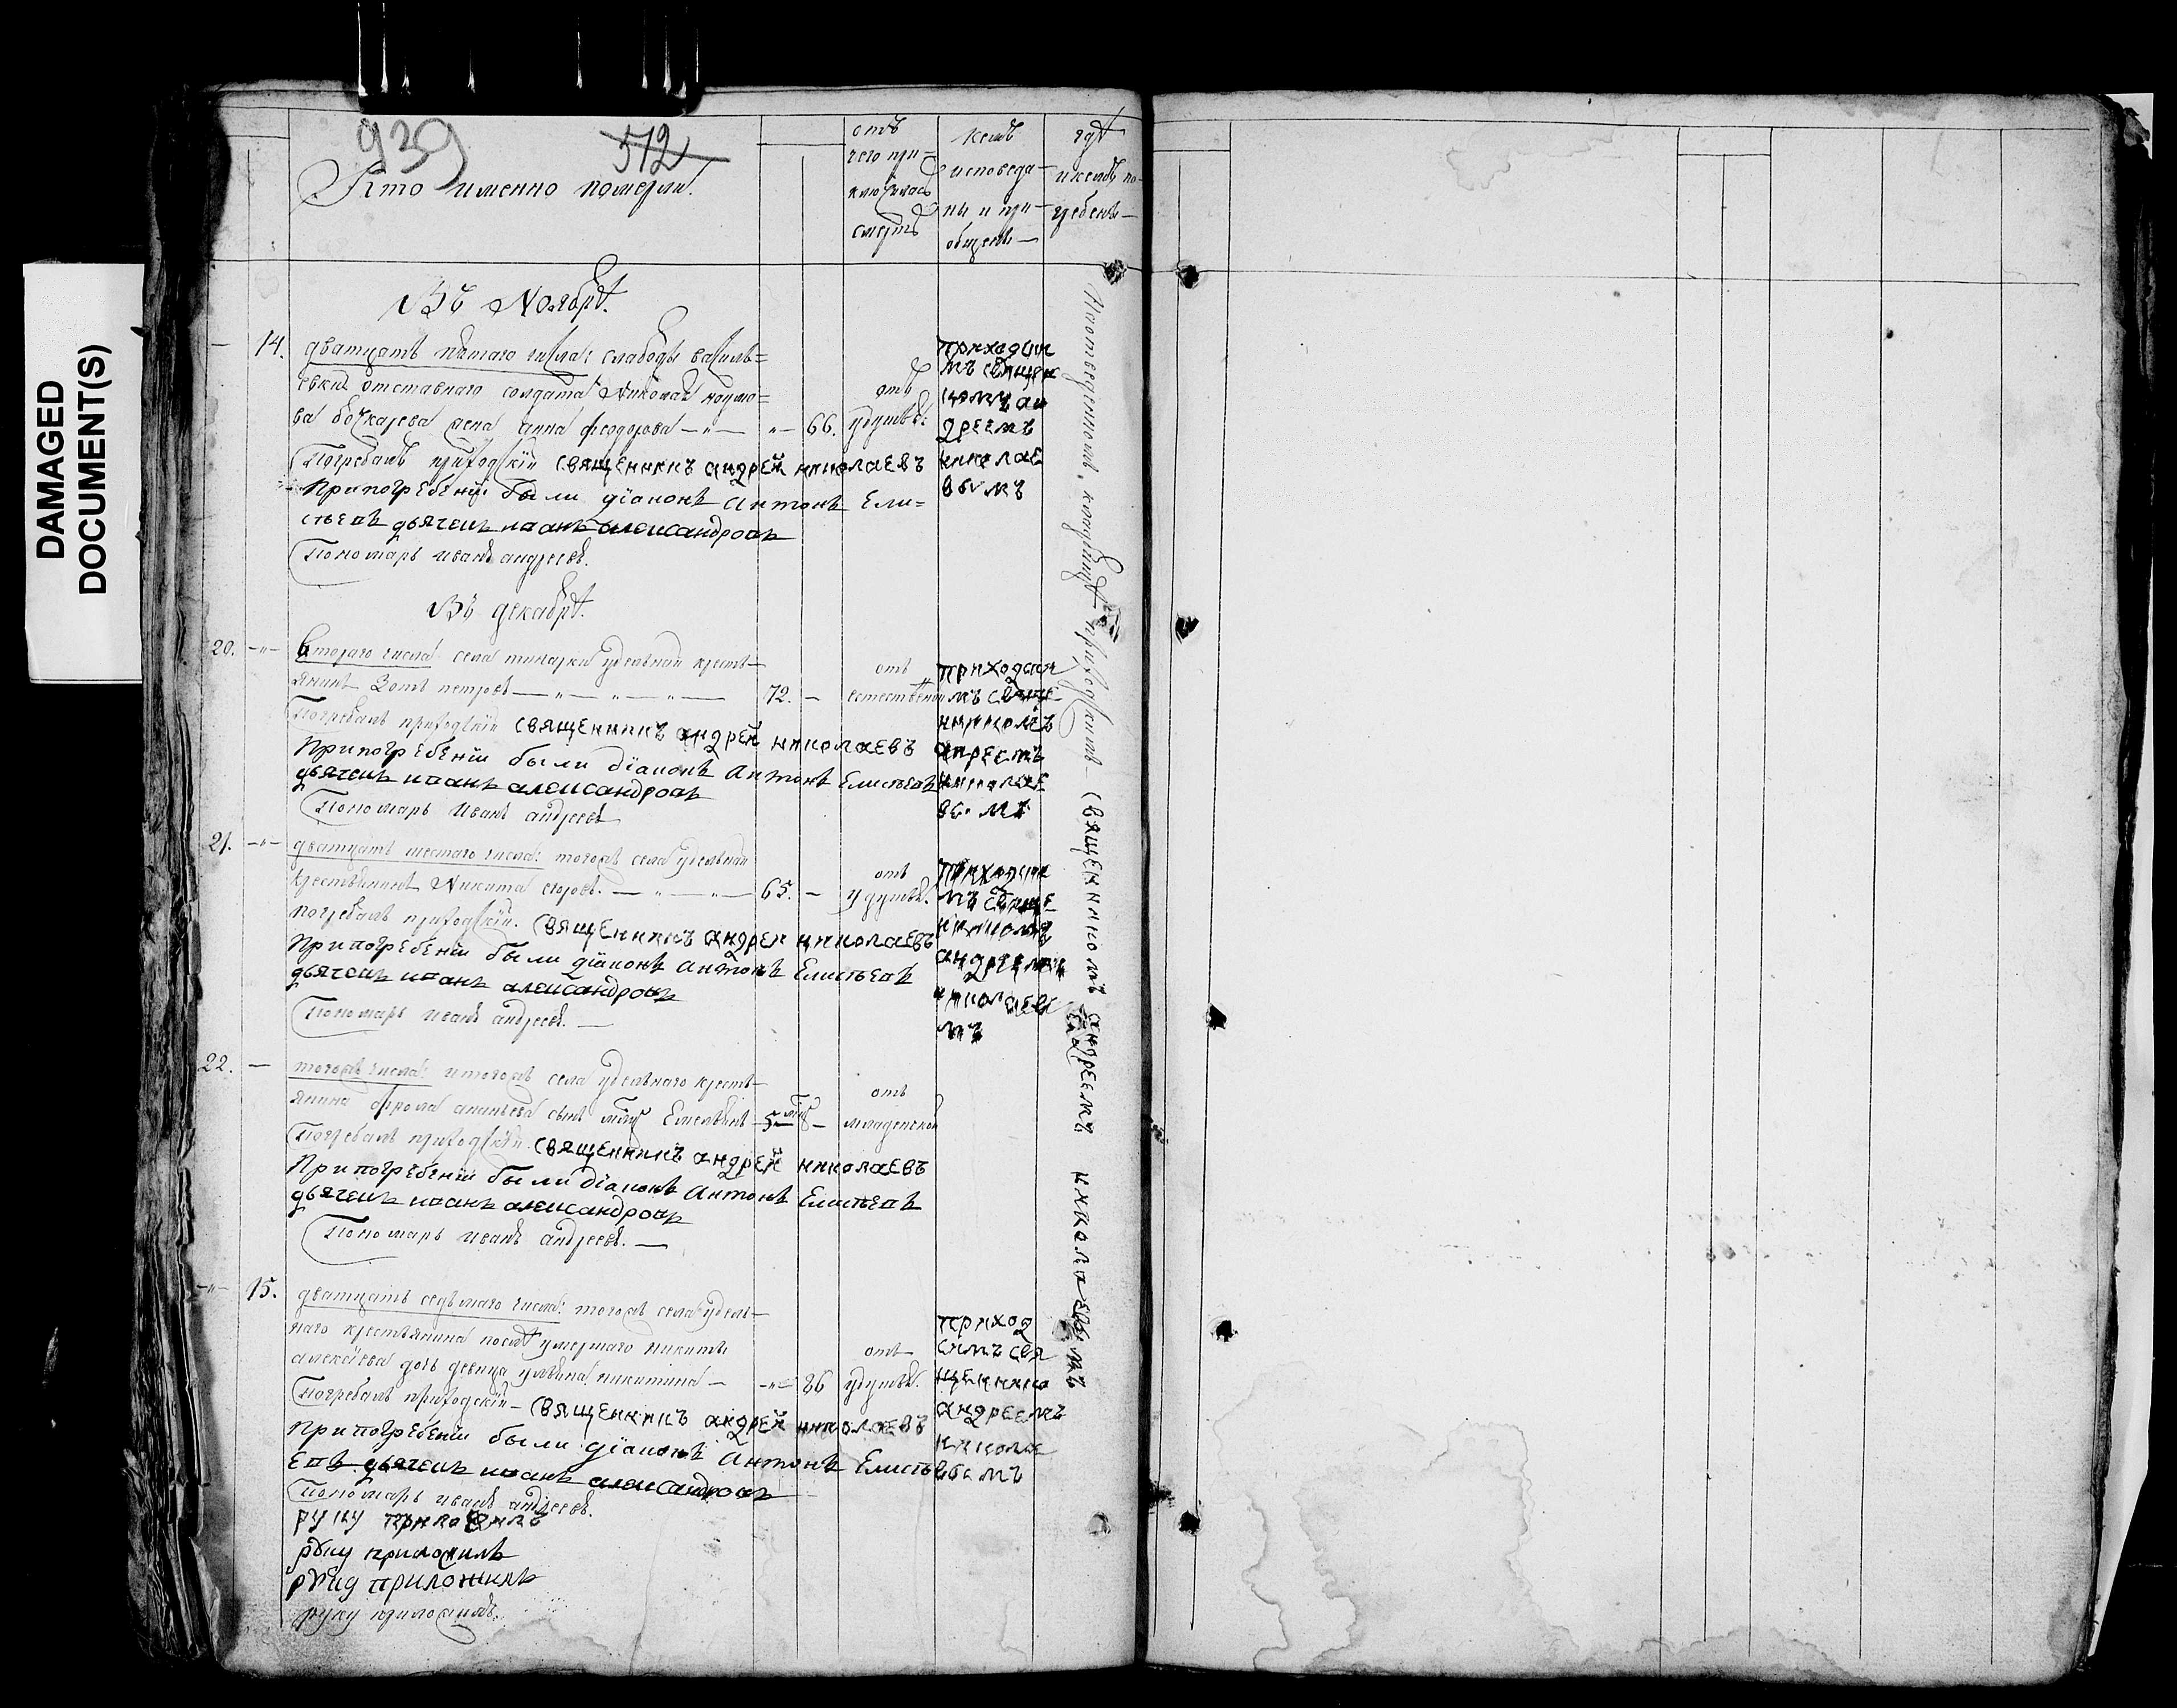 DAMAGED
DOCUMENT(S)
939 512
Кто именно померли.
отъ
чего при=
ключилась
смерть
кемъ
исповеда-
ны и при-
общены
гдѣ
и кемъ по-
гребены
Въ Ноябрѣ.
14. дватцать пятаго числа: слабоды василь=
евки отставнаго солдата Николая наумо=
ва бочкарева жена анна феодорова — „ — „ — 66.
отъ
удушья:
приходски
мъ священ
комъ ан
дреемъ
николае
вымъ
Погребалъ приходскїй священникъ андрей николаевъ
Припогребенїи были дїаконъ Антонъ Ели=
сѣевъ дьячекъ иванъ александровъ
Пономарь иванъ андреевъ.
Въ декабрѣ.
20. — „ — втораго числа села удельнай кресть-
янинъ Зотъ петровъ — „ — „ — „ — 72. —
отъ
естественой
приходски
мъ свяще
нникомъ
андреемъ
николае
вымъ
Погребалъ приходскїй священникъ андрей николаевъ
Припогребенїи были дїаконъ Антонъ Елисѣевъ
дьячекъ иванъ александровъ
Пономарь Иванъ андреевъ
21. — „ — дватцать шестаго числа: тогожъ села удельнай
крестьянинъ Никита егоровъ. — „ — „ — 65. —
отъ
удушья.
приходски
мъ свяще
нникомъ
андреемъ
николаевы
мъ
погребалъ приходскїй. священникъ андрей николаевъ
Припогребенїи были дїаконъ Антонъ Елисѣевъ
дьячекъ иванъ александровъ
Пономарь иванъ андреевъ. —
22. — тогожъ числа: итогожъ села удельнаго кресть-
янина фрола ананьева сынъ Емельянъ 5 —
отъ
младенской
Погребалъ приходскїй священникъ андрей николаевъ
Припогребенїи были дїаконъ Антонъ Елисѣевъ
дьячекъ иванъ александровъ
Пономарь иванъ андреевъ. —
— „ — 15. дватцать седьмаго числа: тогожъ села удель-
наго крестьянина послѣ умершаго никиты
алексїева дочь девица ульяна никитина — — „ — 86
отъ
удушья.
приход
скимъ свя
щеннико
андреемъ
николае
вымъ
Погребалъ приходскїй — священникъ андрей николаевъ
Припогребенїи были дїаконъ Антонъ Елисѣ
евъ дьячекъ иванъ александровъ
Пономарь иванъ андреевъ.
руку приложилъ
руку приложилъ
руку приложилъ
руку приложилъ.
кладбищѣ приходскимъ священникомъ андреемъ николаевымъ